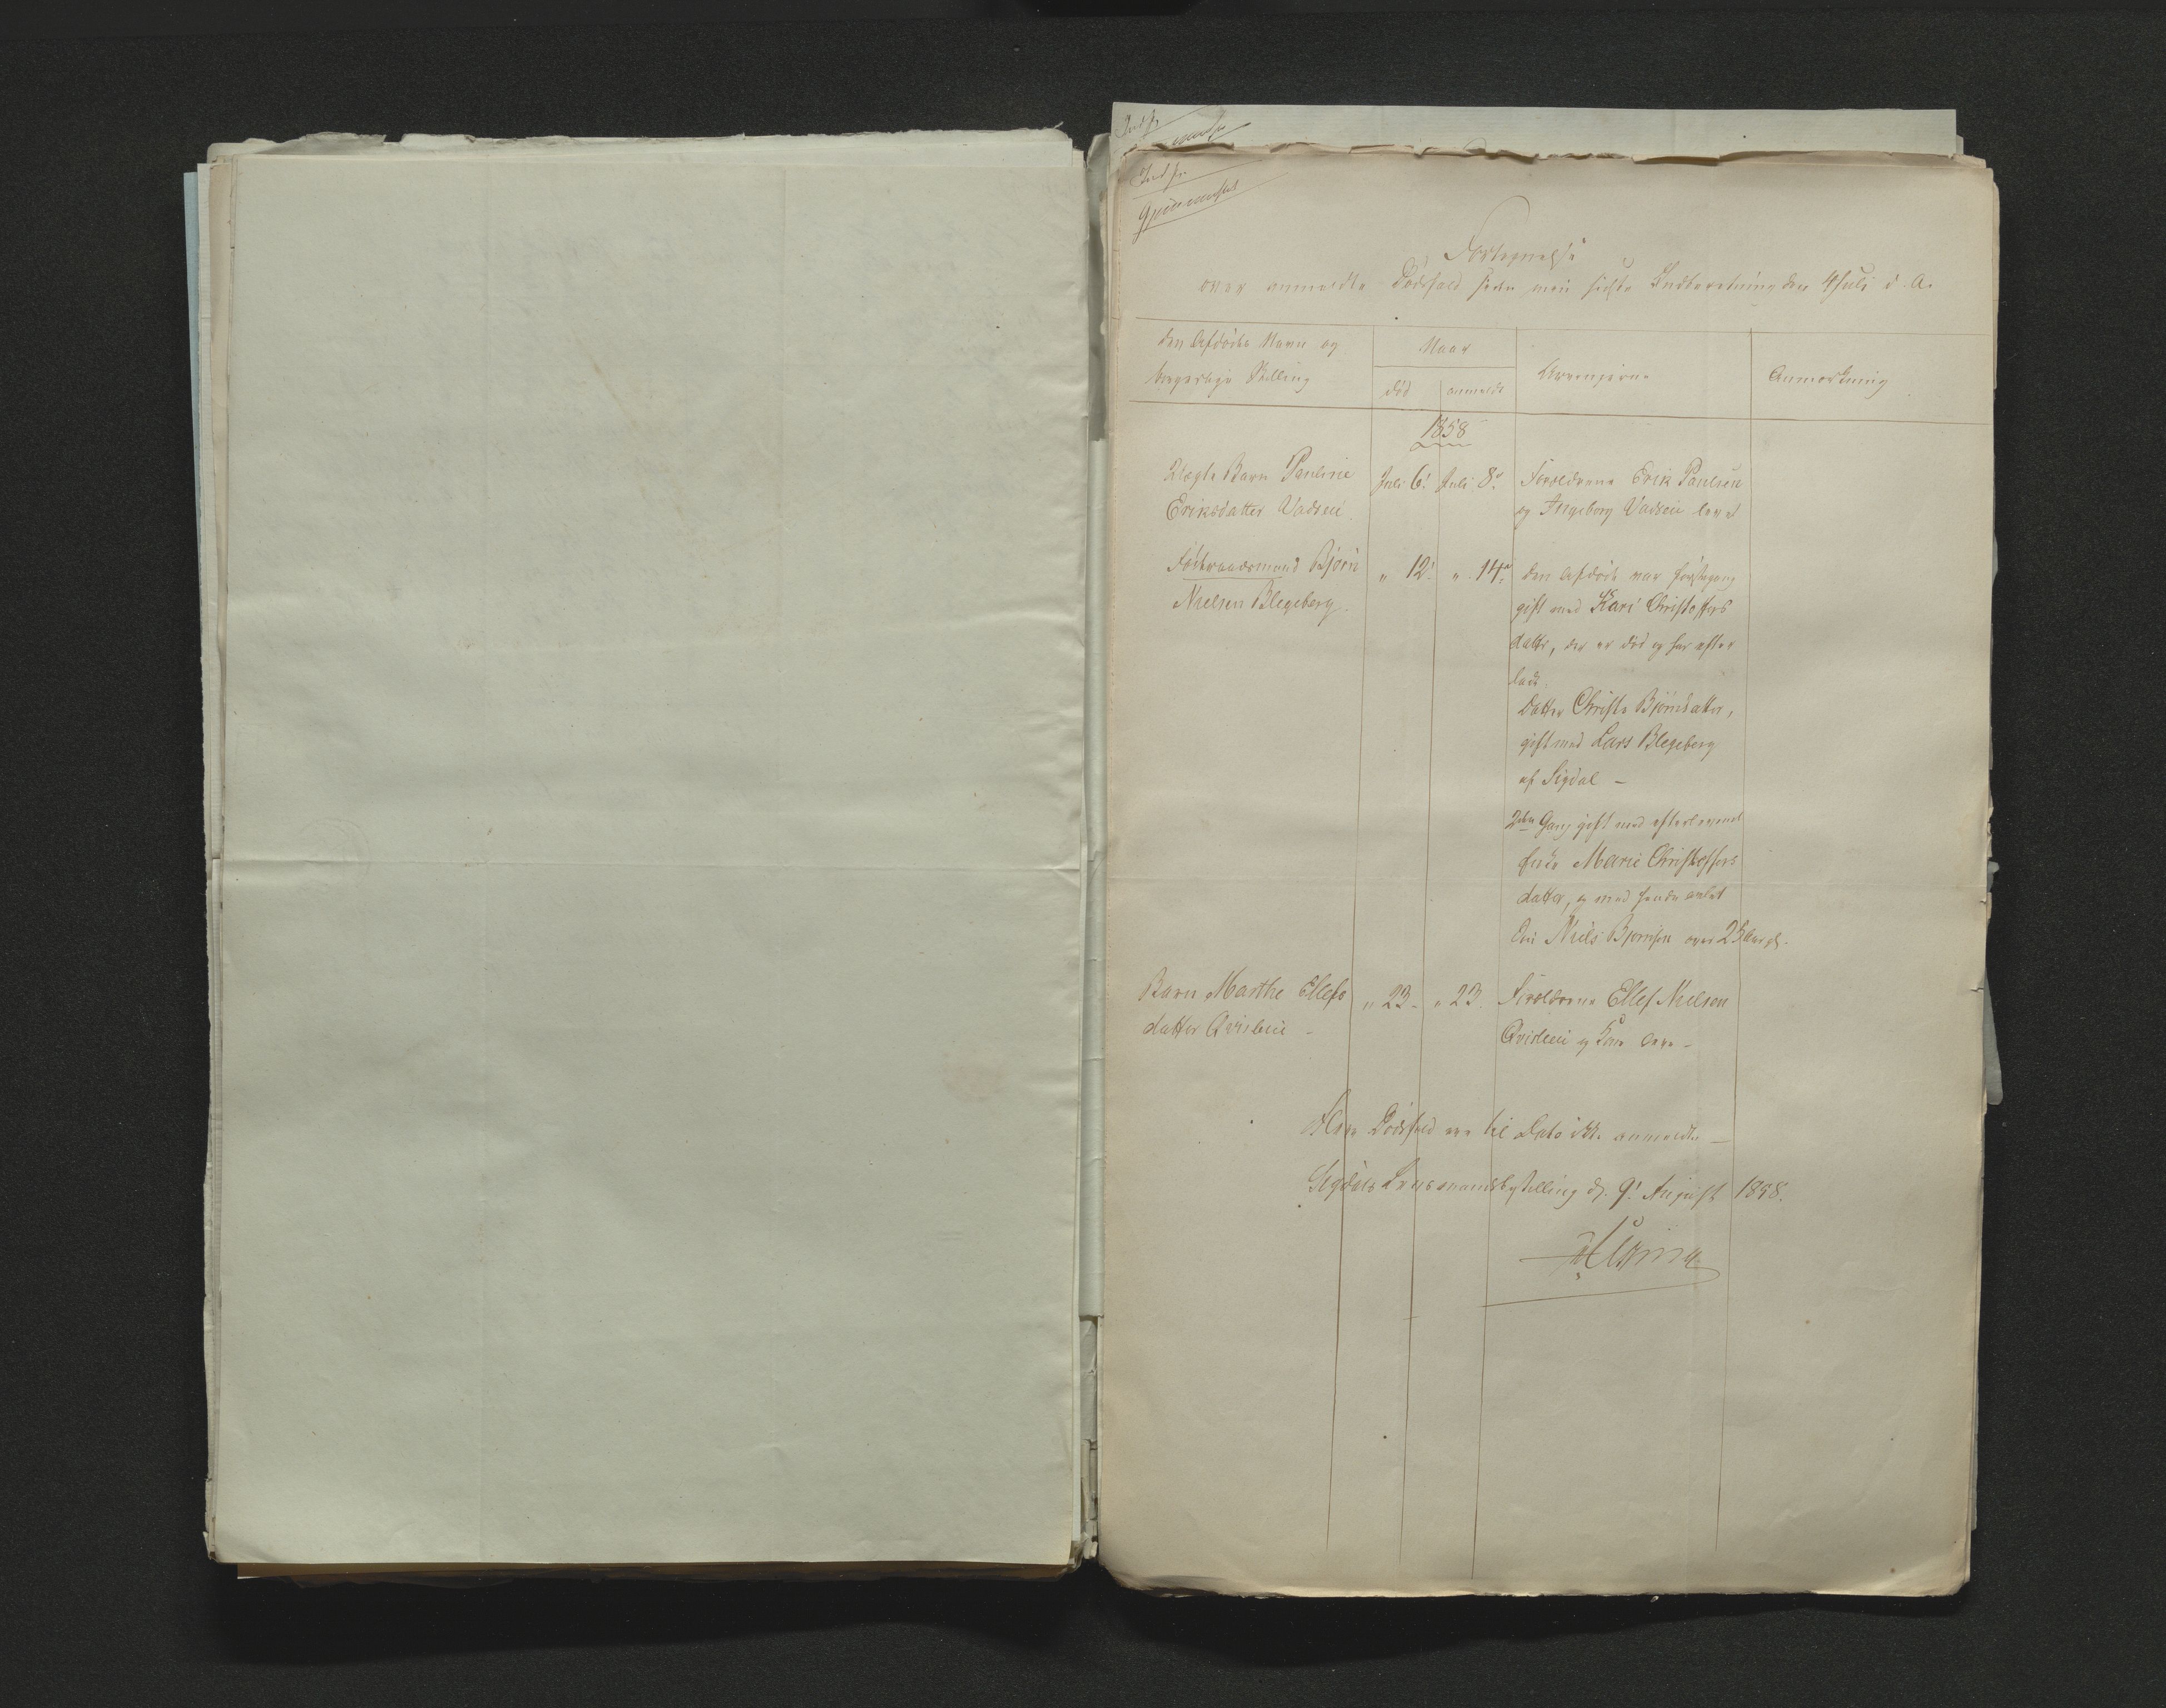 Indf.
Indf.
Gjennemset
Fortegnelse
over anmeldte Dødsfald siden min sidste Indberetning den 4 Juli d. A.
Den Afdødes Navn og
borgerlige Stilling
Naar
død
anmeldt
Arvingerne
Anmærkning
1858
Ægte Barn Pauline
Eriksdatter Vadseie
Juli 6.
Juli 8.
Forældrene Erik Paulsen
og Ingeborg Vadseie lever
Føderaadsmand Bjørn
Nielsen Blegeberg.
" 12.
" 14.
den Afdøde var førstegang
gift med Kari Christoffers
datter, der er død og har efter
ladt.
Datter Christe Bjørnsdatter,
gift med Lars Blegeberg
af Sigdal –
2den Gang gift med efterlevende
Enke Marie Christoffers
datter, og med hende avlet
Søn Niels Bjørnsen over 25 Aar gl.
Barn Marthe Ellefs
datter Qvisleie –
" 23 –
" 23.
Forældrene Ellef Nielsen
Qvisleie og Kone leve –
Flere Dødsfald ere til Dato ikke anmeldte –
Sigdals Lensmandsbestilling d. 9. August 1858.